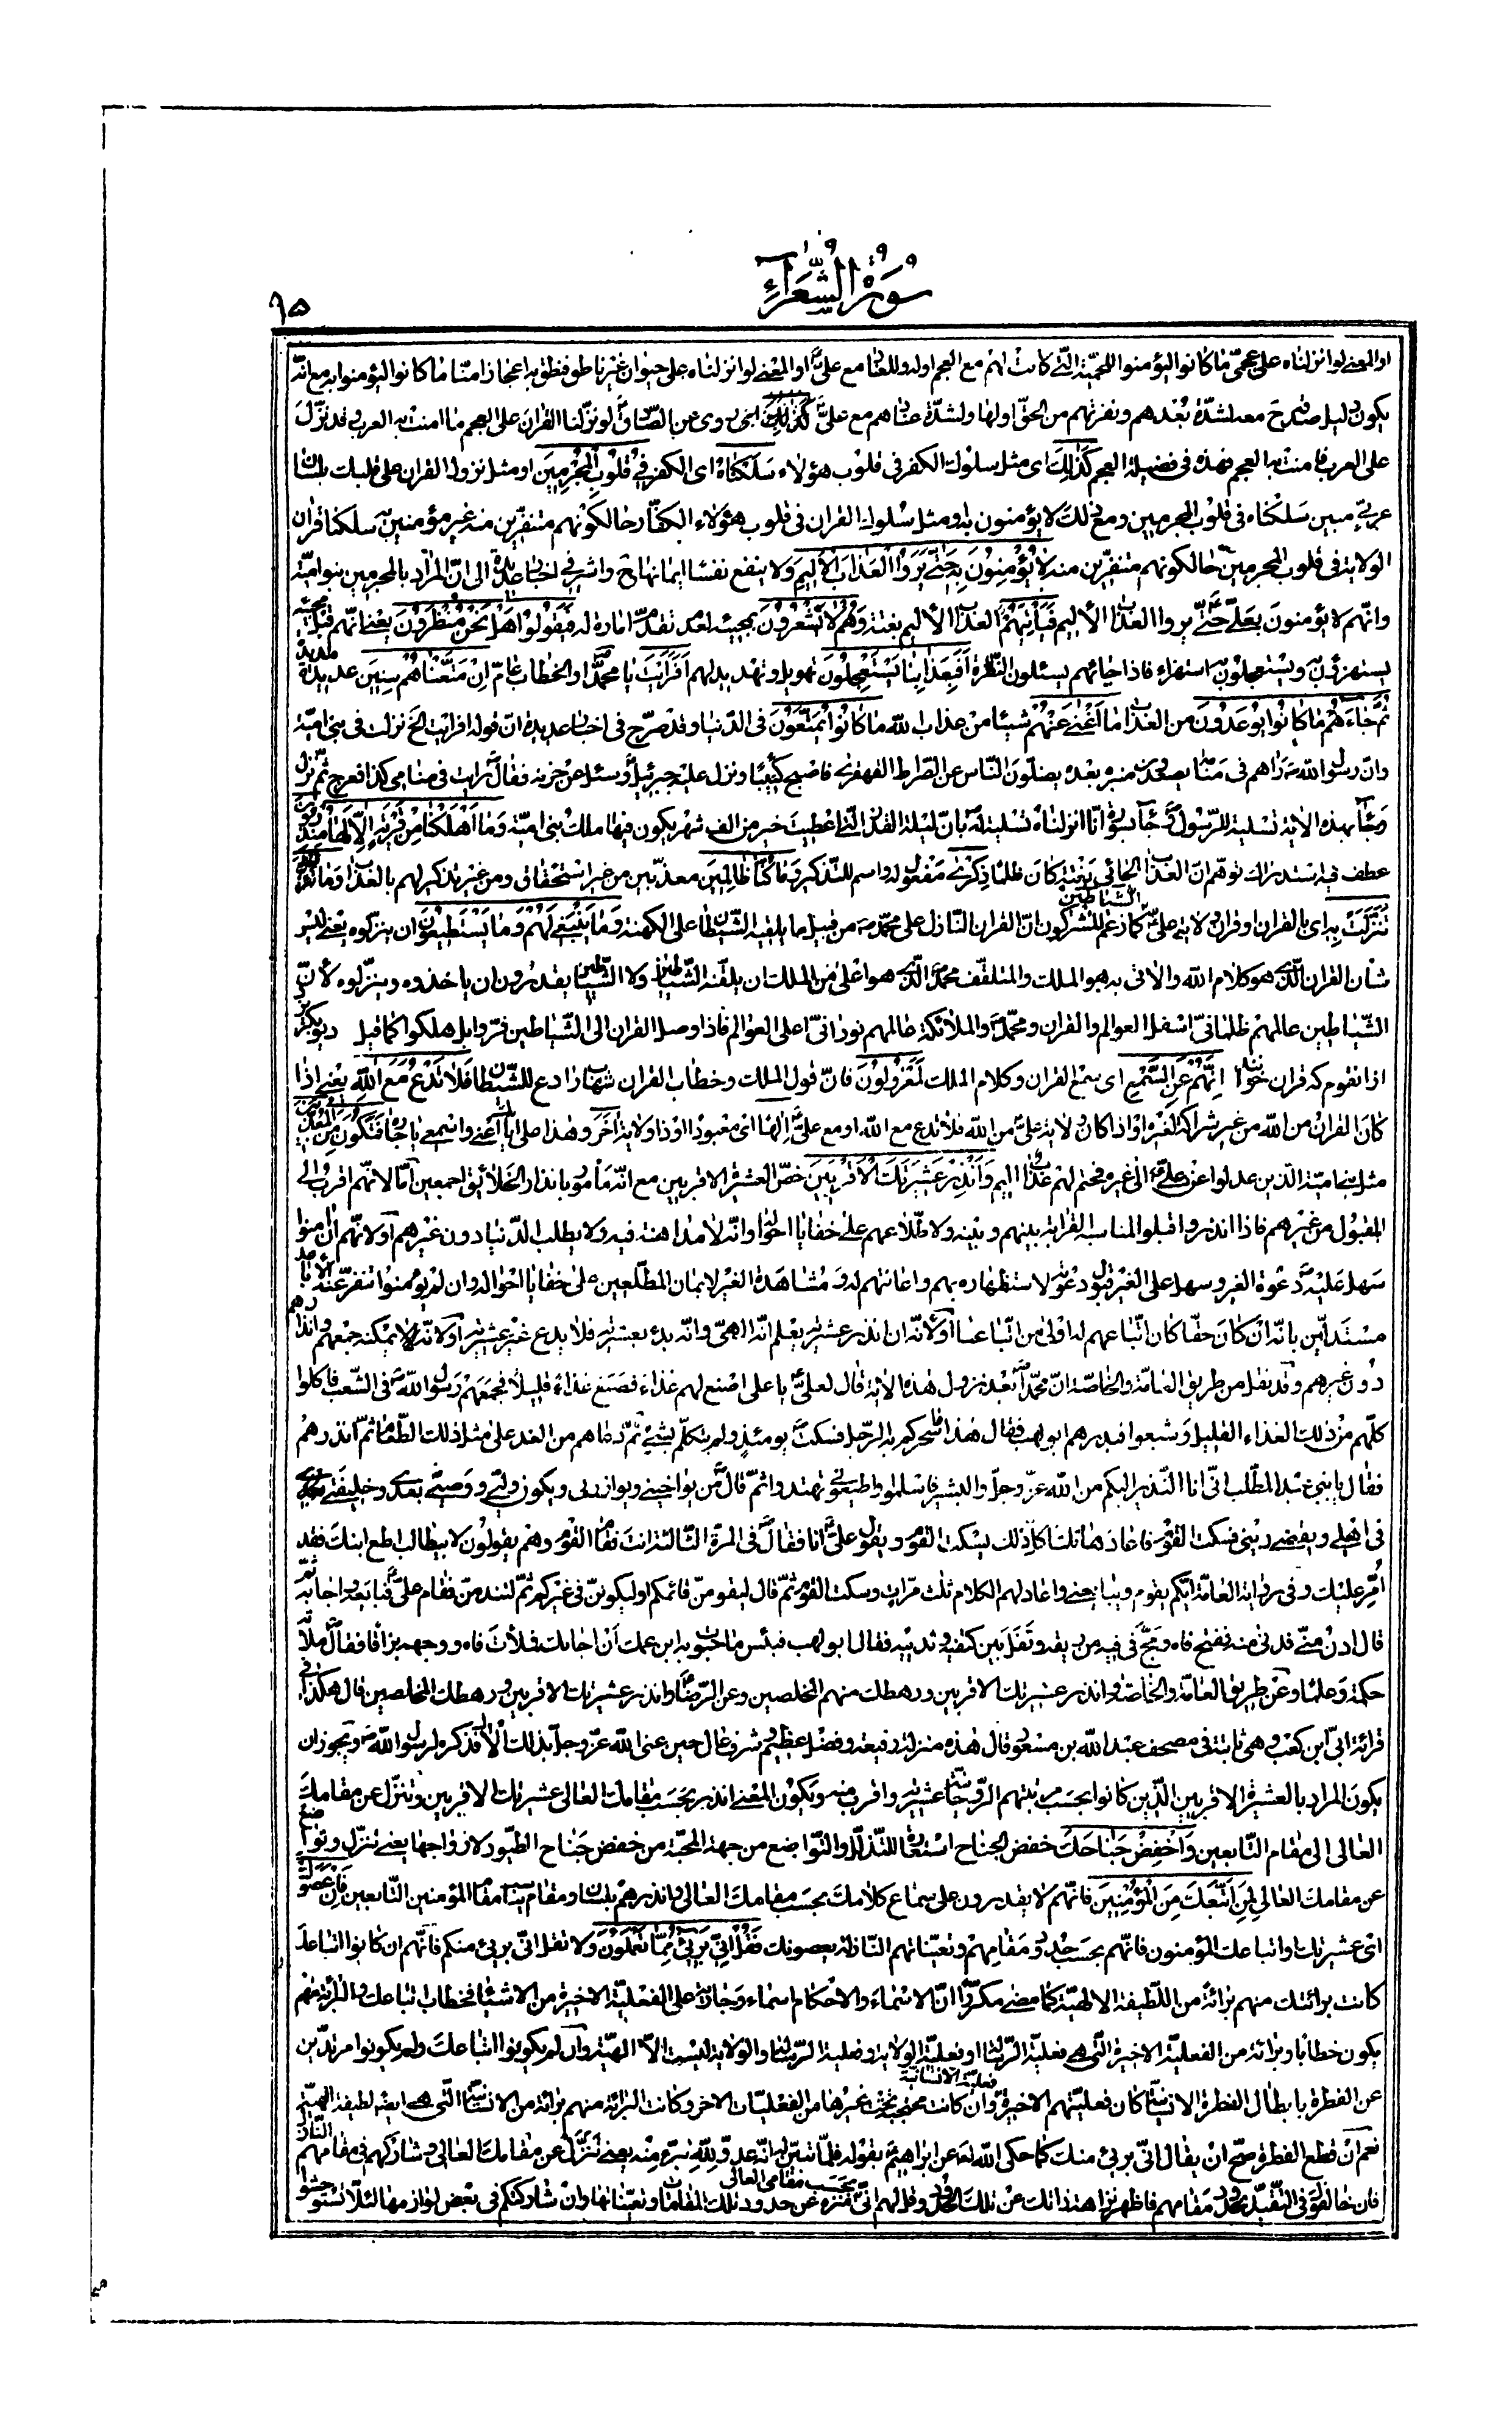 سُورَةُ الشُّعَرَاءِ
٦٥
او المعنى لو انزلناه على عجمىّ ما كانوا ليؤمنوا للحميّة الّتى كانت لهم مع العجم او له وللعناد مع علىّ ع او المعنى لو انزلناه على حيوان غير ناطق فنطق به اعجازا منّا ما كانوا ليؤمنوا به مع انّه
يكون دليل صدق مع لشدّة بعدهم ونفرتهم من الحقّ او لها ولشدّة عنادهم مع علىّ ع كذلك روى عن الصّادق ع لو نزّلنا القران على العجم ما امنت به العرب وقد نزّل
على العرب فامنت به العجم فهذه فى فضيلة العجم كَذٰلِكَ اى مثل سلوك الكفر فى قلوب هؤلاء سَلَكْنَاهُ اى الكفر فِى قُلُوبِ الْمُجْرِمِينَ او مثل نزول القران على قلبك بلسان
عربىّ مبين سلكناه فى قلوب المجرمين ومع ذلك لا يؤمنون به او مثل سلوك القران فى قلوب هؤلاء الكفّار حالكونهم متنفّرين منه غير مؤمنين به سلكنا قران
الولاية فى قلوب المجرمين حالكونهم متنفّرين منه لَا يُؤْمِنُونَ بِهِ حَتّٰى يَرَوُا الْعَذَابَ الْأَلِيمَ ولا ينفع نفسا ايمانها ح واشير فى اخبار عديدة الى انّ المراد بالمجرمين بنو اميّة
وانّهم لا يؤمنون بعلىّ ع حتّى يروا العذاب الأليم فَيَأْتِيَهُمْ العذاب الأليم بغتة وَهُمْ لَا يَشْعُرُونَ بمجيئه لعدم تقدّم امارة له فَيَقُولُوا هَلْ نَحْنُ مُنْظَرُونَ يعنى انّهم قبل مجيئه
يستهزؤن به ويستعجلون به استهزاء فاذا جائهم يسئلون النّظرة أَفَبِعَذَابِنَا يَسْتَعْجِلُونَ تهويل وتهديد لهم أَفَرَأَيْتَ يا محمّد ص او الخطاب عامّ إِنْ مَتَّعْنَاهُمْ سِنِينَ عديدة مديدة
ثُمَّ جَاءَهُمْ مَا كَانُوا يُوعَدُونَ من العذاب مَا أَغْنَى عَنْهُمْ شيئا من عذاب الله مَا كَانُوا يُمَتَّعُونَ فى الدّنيا وقد صرّح فى اخبار عديدة انّ قوله افرايت الخ نزلت فى بنى اميّة
وانّ رسول الله ص راهم فى منامه يصعدون منبره بعده يضلّون النّاس عن الصّراط القهقرى فاصبح كئيبا ونزل عليه جبرئيل ع وسئل عن حزنه فقال ص رايت فى منامى كذا فعرج ثمّ نزل
وجاء بهذه الاية تسلية للرّسول ص وجاء بسورة انّا انزلناه تسلية له بانّ ليلة القدر الّتى اعطيت خير من الف شهر يكون فيها ملك بنى اميّة وَمَا أَهْلَكْنَا مِنْ قَرْيَةٍ إِلَّا لَهَا مُنْذِرُونَ
عطف فيه استدراك توهم انّ العذاب الجائى بغتة كان ظلما ذِكْرَى مفعول له واسم للتّذكير وَمَا كُنَّا ظَالِمِينَ معذّبين من غير استحقاق ومن غير تذكير لهم بالعذاب وَمَا
تَنَزَّلَتْ بِهِ اى بالقران او قران ولاية علىّ ع الشَّيَاطِينُ كما زعم المشركون انّ القران النّازل على محمّد ص من قبيل ما يلقيه الشّيطان على الكهنة وَمَا يَنْبَغِى لَهُمْ وَمَا يَسْتَطِيعُونَ ان ينزلوه يعنى ليس
شأن القران الّذى هو كلام الله والاتى به هو الملك والمتلقّف محمّد ص الّذى هو اعلى من الملك ان يلقيه الشّياطين ولا الشّياطين يقدرون ان ياخذوه وينزّلوه لانّ
الشّياطين عالمهم ظلمانىّ اسفل العوالم والقران ومحمّد ص والملائكة عالمهم نورانىّ اعلى العوالم فاذا وصل القران الى الشّياطين فرّوا بل هلكوا كما قيل ديو بگريزد
از آن قوم كه قران خوانند إِنَّهُمْ عَنِ السَّمْعِ اى سمع القران وكلام الملك لَمَعْزُولُونَ فانّ قول الملك وخطاب القران شهاب رادع للشّيطان فَلَا تَدْعُ مَعَ اللّٰهِ يعنى اذا
كان القران من الله من غير شراكة لغيره او اذا كان ولاية علىّ ع من الله فلا تدع مع الله او مع علىّ ع إِلٰهًا اى معبودا او ذا ولاية آخَرَ وهذا على ايّاك اعنى واسمعى يا جارة فَتَكُونَ مِنَ الْمُعَذَّبِينَ
مثل بنى اميّة الّذين عدلوا عن علىّ ع الى غيره فحتم لهم عذاب اليم وَأَنْذِرْ عَشِيرَتَكَ الْأَقْرَبِينَ خصّ العشيرة الاقربين مع انّه مأمور بانذار الخلائق اجمعين امّا لانّهم اقرب الى
القبول من غيرهم فاذا انذروا قبلوا لمناسبة القرابة بينهم وبينه ولاطّلاعهم على خفايا احواله وانّه لا مداهنة فيه ولا يطلب الدّنيا دون غيرهم او لانّهم ان امنوا
سهل عليه دعوة الغير وسهل على الغير قبول دعوته لاستظهاره بهم واعانتهم له ومشاهدة الغير لايمان المطّلعين على خفايا احواله وان لم يؤمنوا تنفّر عنه الاباعد
مستدلّين بانّه ان كان حقّا كان اتّباعهم له اولى من اتّباعنا او لانّه ان انذر عشيرته يعلم انّه الهىّ وانّه بدء بعشيرته فلا يدع غير عشيرته او لانّه لا يمكنه جمعهم وانذارهم
دون غيرهم وقد نقل من طريق العامّة والخاصّة انّ محمّدا ص بعد نزول هذه الاية قال لعلىّ ع يا على اصنع لهم غذاء فصنع غذاء قليلا فجمعهم رسول الله ص فى الشّعب فاكلوا
كلّهم من ذلك الغذاء القليل وشبعوا فبدرهم ابو لهب فقال هذا ما سحركم به الرّجل فسكت ص يومئذ ولم يتكلّم بشيء ثمّ دعاهم من الغد على مثل ذلك الطّعام ثمّ انذرهم
فقال يا بنى عبد المطّلب انّى انا النّذير اليكم من الله عزّ وجلّ والبشير فاسلموا واطيعونى تهتدوا ثمّ قال من يواخينى ويوازرنى ويكون وليّى ووصيّى بعدى وخليفتى
فى اهلى ويقضى دينى فسكت القوم فاعادها ثلثا كلّ ذلك يسكت القوم ويقول علىّ ع انا فقال ص فى المرّة الثّالثة انت فقام القوم وهم يقولون لابيطالب اطع ابنك فقد
امّر عليك وفى رواية العامّة ايّكم يقوم ويبايعنى واعاد لهم الكلام ثلث مرّات وسكت القوم ثمّ قال ليقومنّ قائمكم او ليكوننّ فى غيركم ثمّ لتندمنّ فقام علىّ ع فبايعه واجابه ثمّ
قال ادن منّى فدنى منه ففتح فاه ومجّ فى فيه من ريقه وتفل بين كتفيه وثدييه فقال ابو لهب فبئس ما حبوت به ابن عمك ان اجابك فملأت فاه ووجهه بزاقا فقال ص ملأته
حكمة وعلما وعن طريق العامّة والخاصّة وانذر عشيرتك الاقربين ورهطك منهم المخلصين وعن الرّضا ع وانذر عشيرتك الاقربين ورهطك المخلصين قال هكذا فى
قرائة ابىّ ابن كعب وهى ثابتة فى مصحف عبد الله بن مسعود قال هذه منزلة رفيعة وفضل عظيم وشرف عال حين عنى الله عزّ وجلّ بذلك الال فذكره لرسول الله ص ويجوز ان
يكون المراد بالعشيرة الاقربين الّذين كانوا بحسب مرتبتهم الرّوحانيّة عشيرته واقرب منه ويكون المعنى انذر بحسب مقامك العالى عشيرتك الاقربين وتنزّل عن مقامك
العالى الى مقام التّابعين وَاخْفِضْ جَنَاحَكَ خفض الجناح استعارة للتّذلّل والتّواضع من جهة المحبّة من خفض جناح الطّيور لازواجها يعنى تنزّل وتواضع
عن مقامك العالى لِمَنِ اتَّبَعَكَ مِنَ الْمُؤْمِنِينَ فانّهم لا يقدرون على سماع كلامك بحسب مقامك العالى وانذرهم بلسان ومقام يناسب مقام المؤمنين التّابعين فَإِنْ عَصَوْكَ
اى عشيرتك او اتباعك المؤمنون فانّهم بحسب حدود مقامهم وتعيّناتهم النّازلة يعصونك فَقُلْ إِنِّى بَرِىءٌ مِمَّا تَعْمَلُونَ ولا تقل انّى برىء منكم فانّهم ان كانوا اتباعك
كانت برائتك منهم برائة من اللّطيفة الالهيّة كما مضى مكرّرا انّ الاسماء والاحكام اسماء وجارية على الفعليّة الاخيرة من الاشياء فخطاب اتباعك والبرائة منهم
يكون خطابا وبرائة من الفعليّة الاخيرة الّتى هى فعليّة الرّسالة او فعليّة الولاية وفعليّة الرّسالة والولاية ليست الّا الهيّة وان لم يكونوا اتباعك ولم يكونوا مرتدّين
عن الفطرة بابطال الفطرة الانسانيّة كان فعليّتهم الاخيرة فعليّة الانسانيّة وان كانت محتجبة تحت غيرها من الفعليّات الاخر وكانت البرائة منهم برائة من الانسانيّة الّتى هى ايضا لطيفة الهيّة
نعم ان قطع الفطرة صحّ ان يقال انّى برىء منك كما حكى الله تع عن ابراهيم ع بقوله فلمّا تبيّن له انّه عدوّ لله تبرّء منه يعنى تنزّل عن مقامك العالى وشاركهم فى مقامهم النّازل
فان خالفوك فى التّقيّد بحدود مقامهم فاظهر نزاهة ذاتك عن تلك الحدود وقل لهم انّى بحسب مقامى العالى متنزّه عن حدود تلك المقامات وتعيّناتها وان شاركتكم فى بعض لوازمها لئلّا تستوحشوا